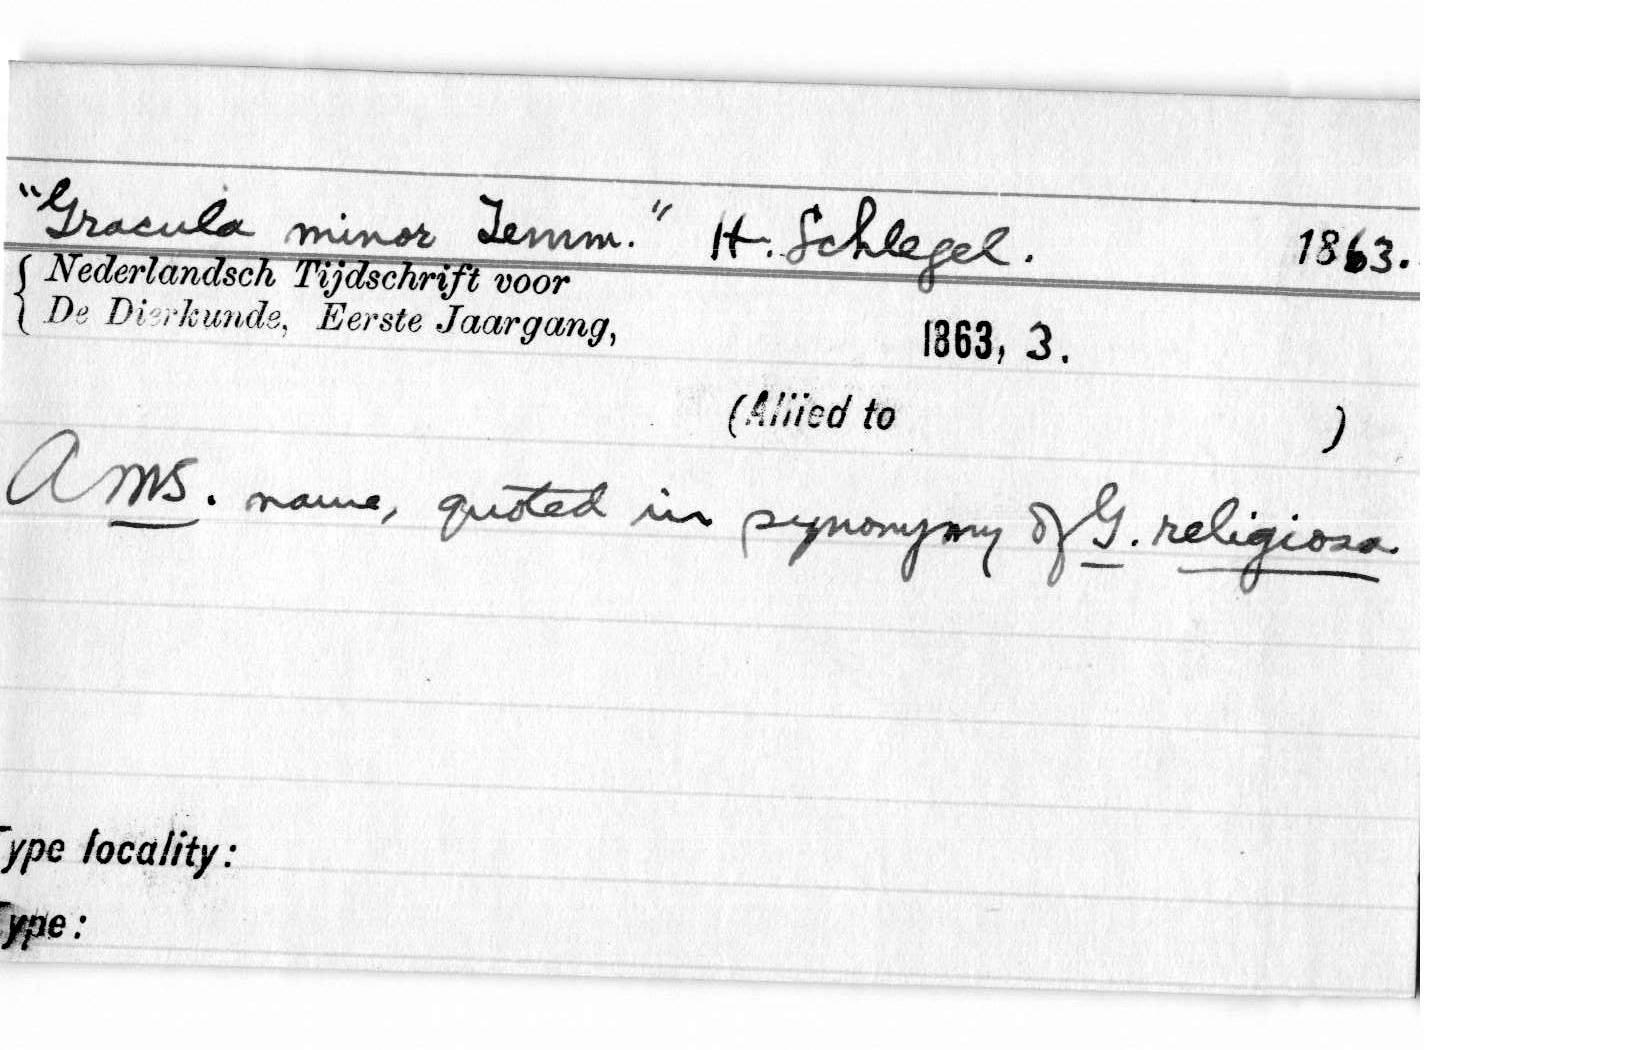 "Gracula minor Temm." H. Schlegel. 1863.
Nederlandsch Tijdschrift voor
De Dierkunde, Eerste Jaargang,
1863, 3.
(Allied to )
A MS. name, quoted in synonymy of G. religiosa.
Type locality:
Type: